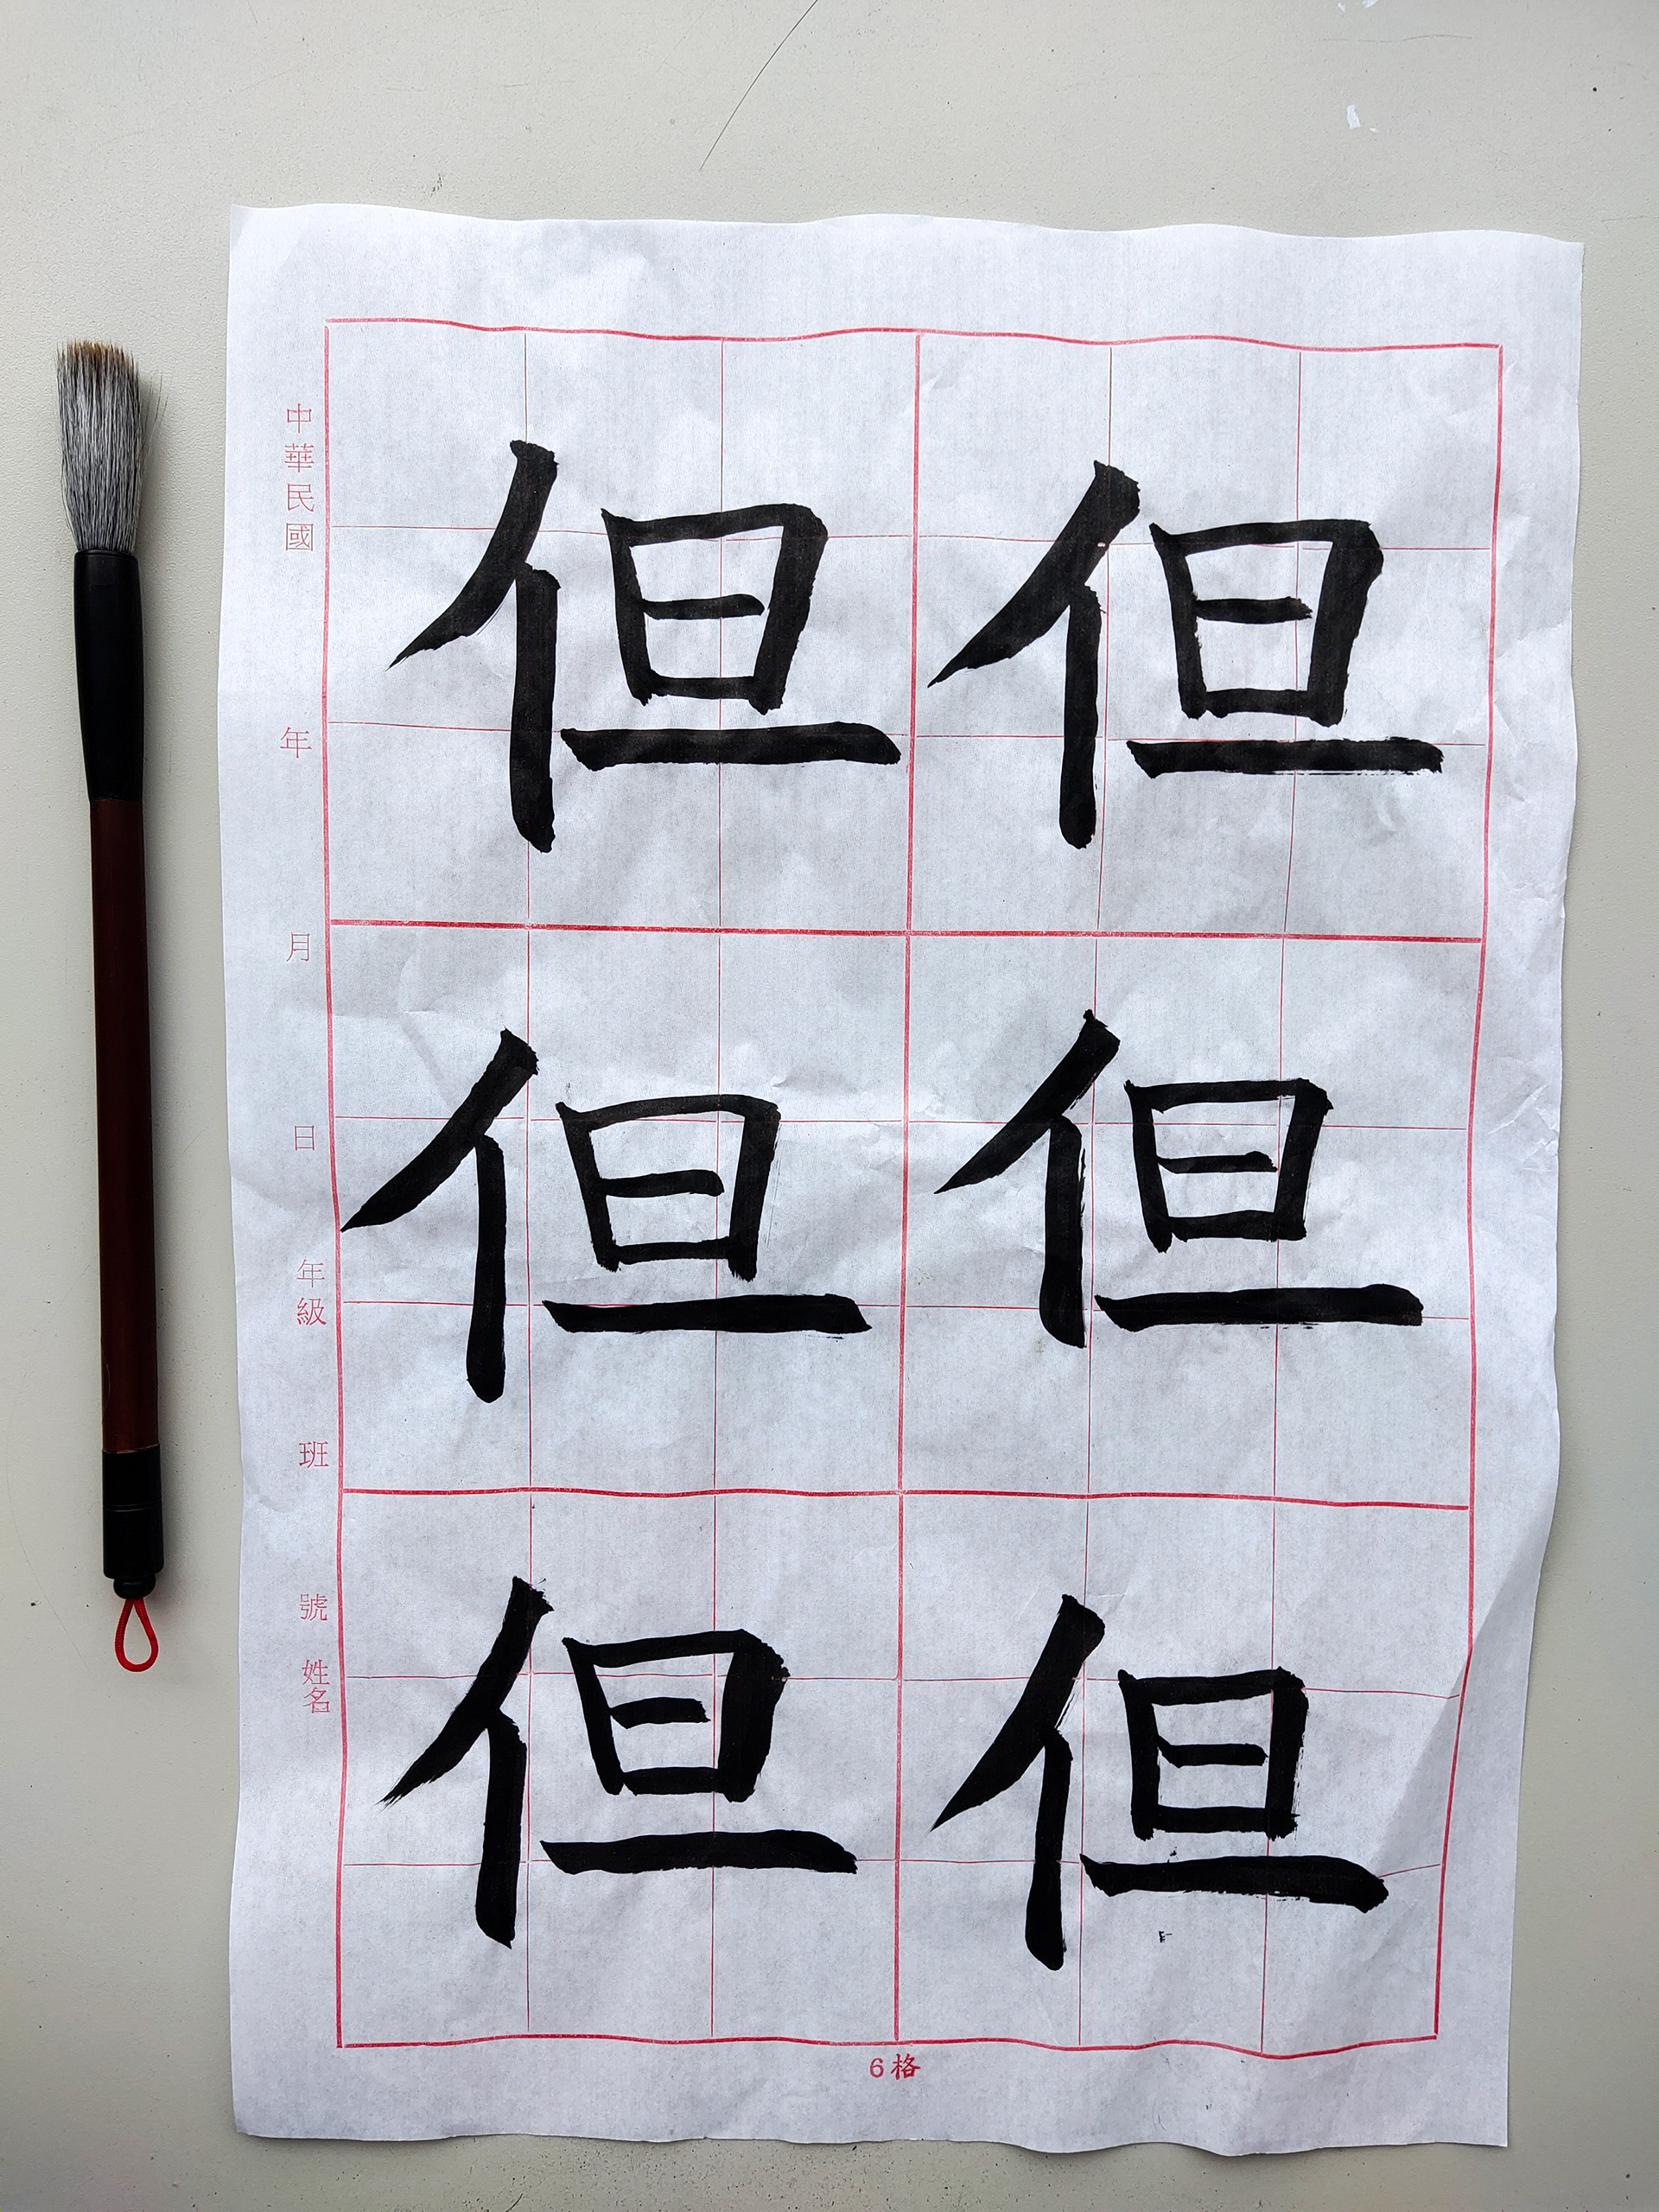 中華民國 年 月 日 年級 班 號 姓名
但 但
但 但
但 但
6格